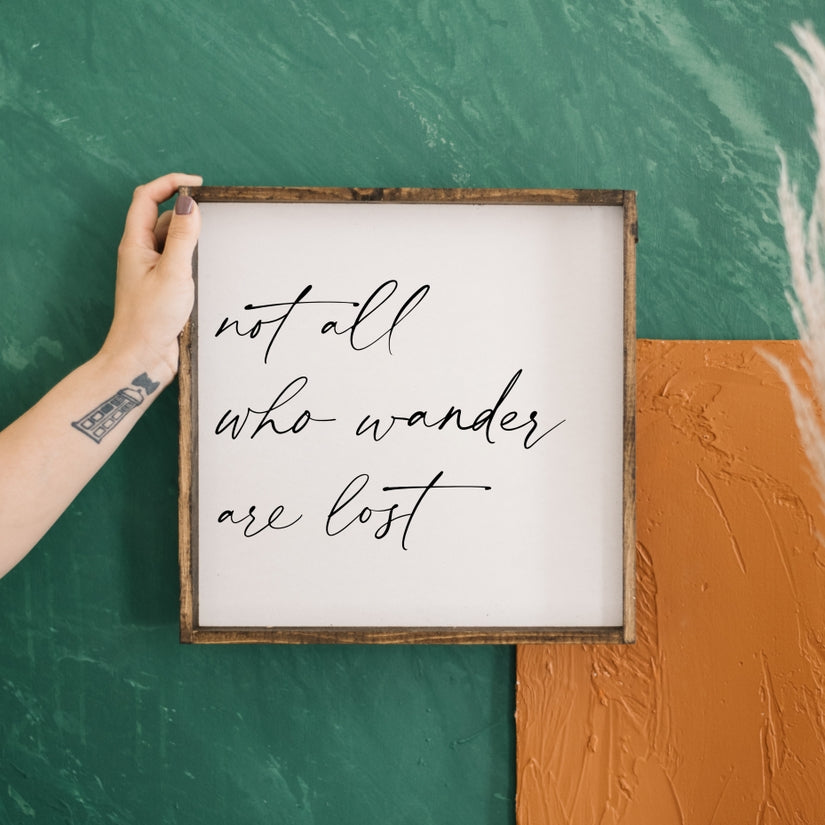 not all
who wander
are lost